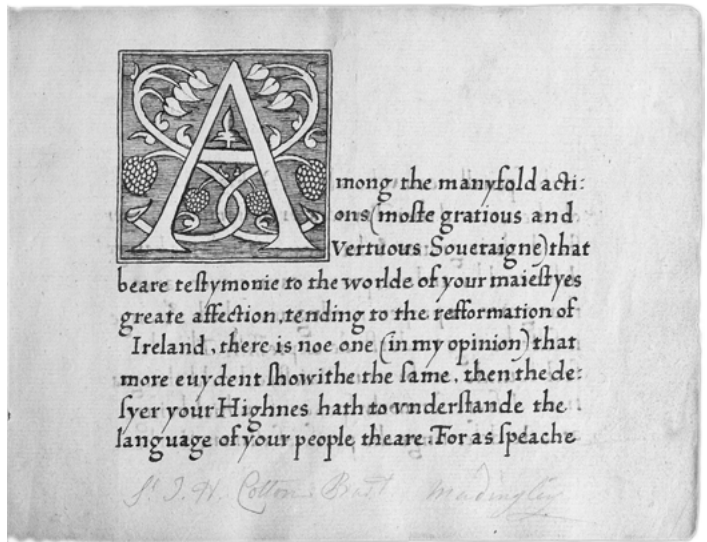 Among the manyfold acti:
ons (moſte gratious and
Vertuous Soueraigne) that
beare teſtymonie to the worlde of your maieſtyes
greate affection, tending to the refformation of
Ireland, there is noe one (in my opinion) that
more euydent ſhowithe the ſame, then the de:
ſyer your Highnes hath to vnderſtande the
language of your people theare. For as ſpeache
Sr. J. H. Cotton Bart Madingley